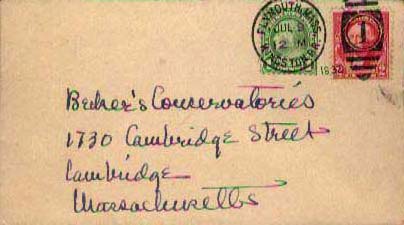 PLYMOUTH, MASS.
JUL 9
12 M
KINGSTON R.R.
1932
1
2
Becker's Conservatories
1730 Cambridge Street
Cambridge
Massachusetts